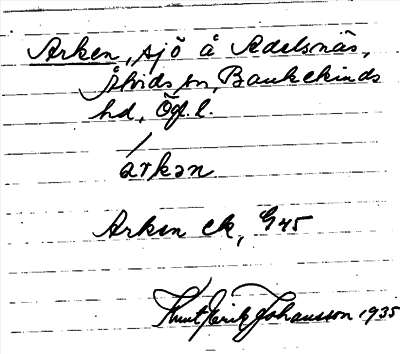 Arken, sjö å Adelsnäs,
Åtvids sn, Bankekinds
hd, Ög. l.
árkən
Arken ek, G45
Knut Erik Johansson 1935